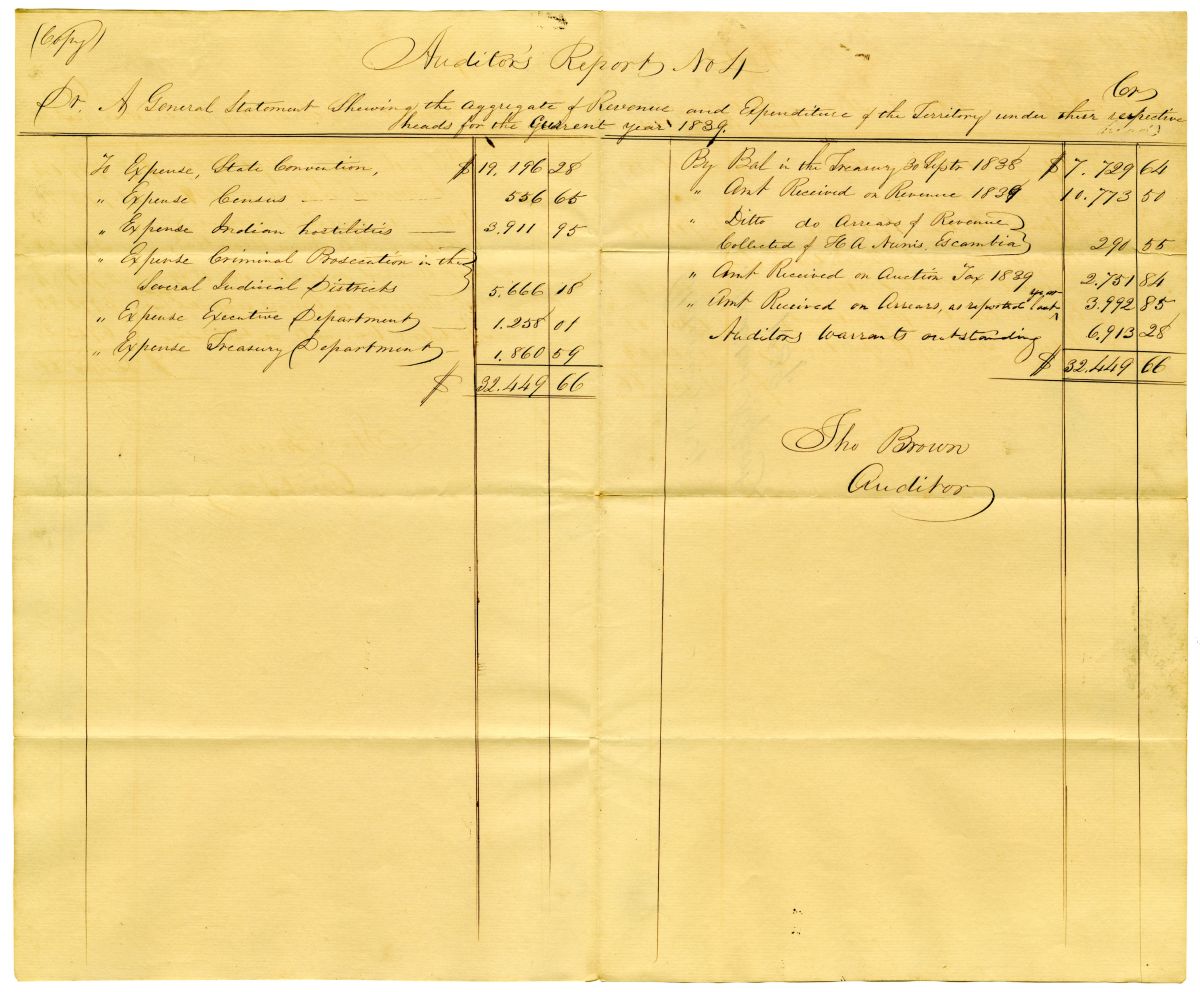 (Copy)
Auditor's Report No 4
Cr
Dr. A General Statement Shewing the Aggregate of Revenue and Expenditure of the Territory under their respective
heads for the Current year 1839.
To Expense, State Convention, $ 19,196 28
" Expense Census 556 65
" Expense Indian hostilities 3.911 95
" Expense Criminal Prosecution in the
Several Judicial Districts 5.666 18
" Expense Executive Department 1.258 01
" Expense Treasury Department 1.860 59
$ 32.449 66
By Bal in the Treasury 30 Septr 1838 $ 7.729 64
" Amt Received on Revenue 1839 10.773 50
" Ditto do Arrears of Revenue
Collected of H A Nunis, Escambia 290 55
" Amt Received on Auction Tax 1839 2.751 84
" Amt Received on Arrears, as reported last year 3.992 85
Auditors Warrants outstanding 6.913 28
$ 32.449 66
Tho Brown
Auditor